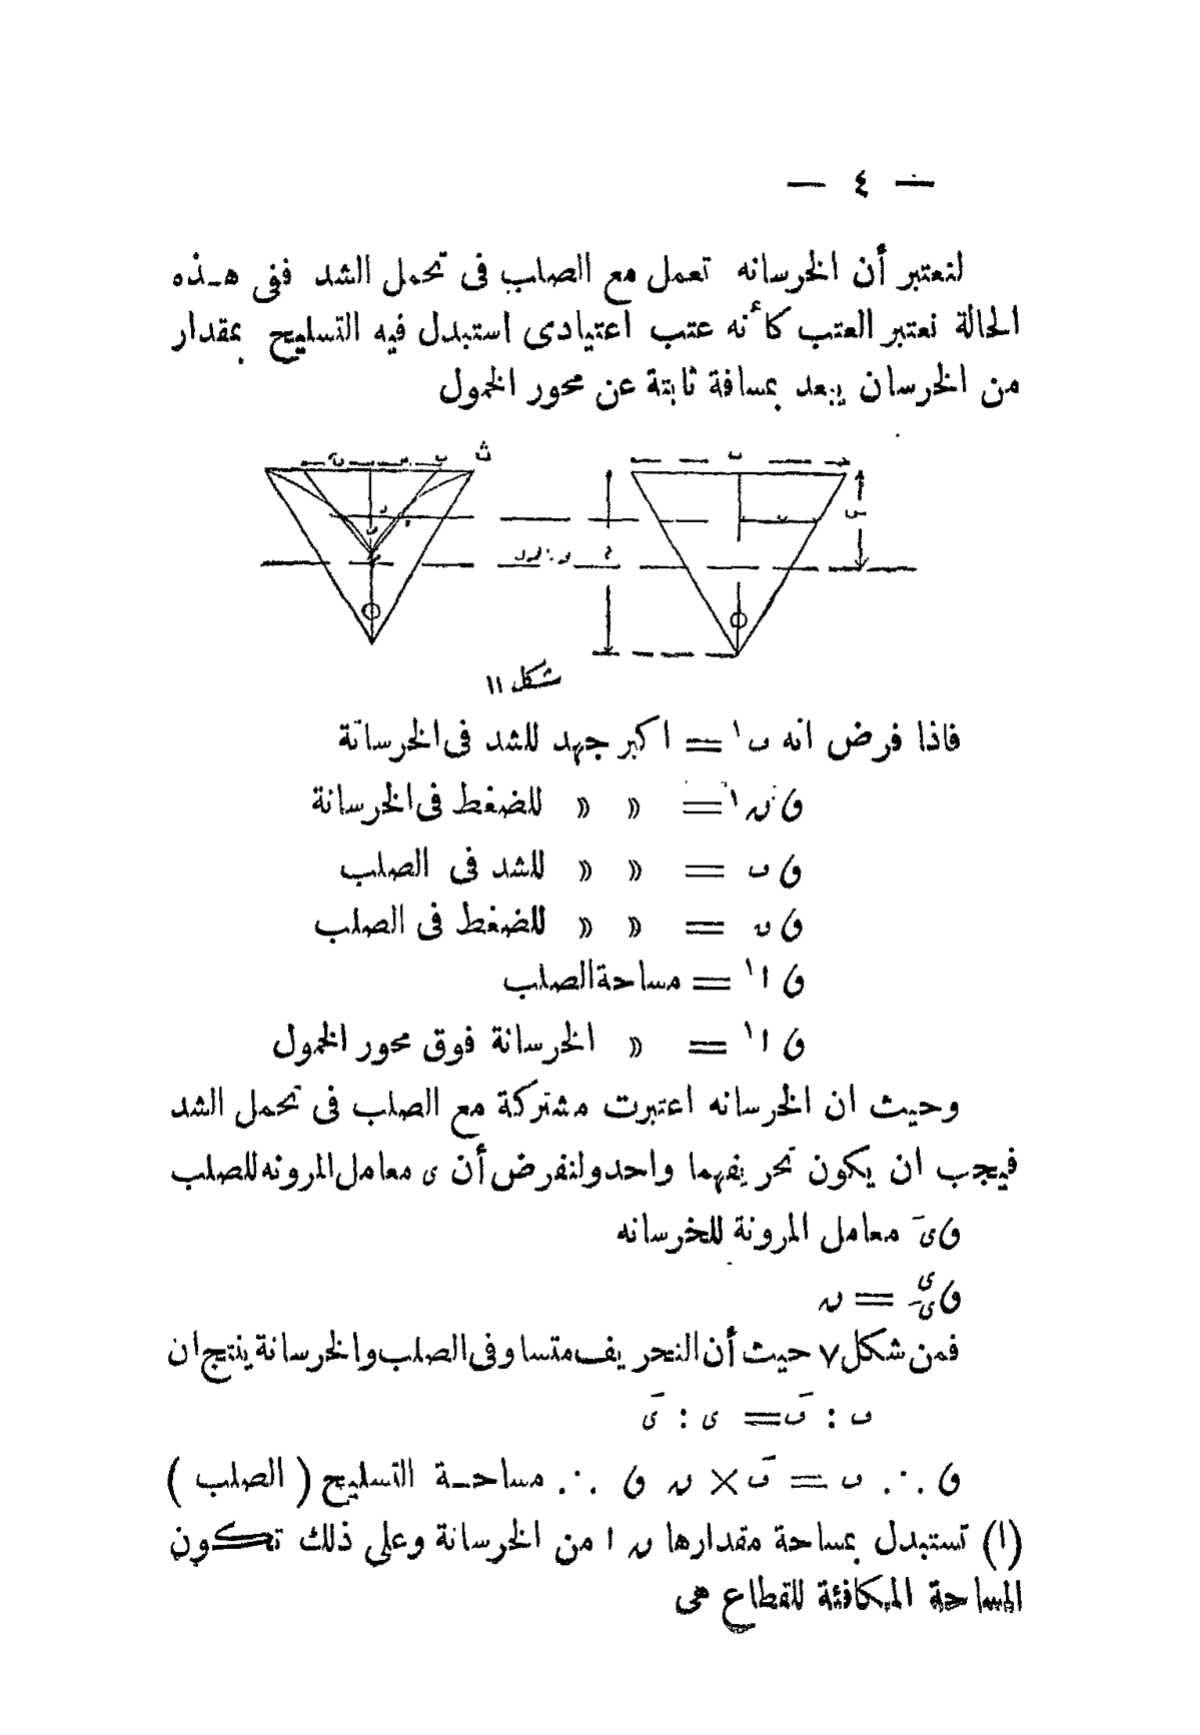 — ٤ —
لنعتبر أن الخرسانه تعمل مع الصلب فى تحمل الشد ففى هـذه
الحالة نعتبر العتب كأنه عتب اعتيادى استبدل فيه التسليح بمقدار
من الخرسان يبعد بمسافة ثابتة عن محور الخمول
شكل ١١
فاذا فرض انه ں١ = اكبر جهد للشد فى الخرسانة
و ں١ = » » للضغط فى الخرسانة
و ں = » » للشد فى الصلب
و ں = » » للضغط فى الصلب
و ا١ = مساحة الصلب
و ا١ = » الخرسانة فوق محور الخمول
وحيث ان الخرسانه اعتبرت مشتركة مع الصلب فى تحمل الشد
فيجب ان يكون تحريفهما واحد ولنفرض أن ى معامل المرونه للصلب
و ىَ معامل المرونة للخرسانه
و ى/ىَ = ں
فمن شكل ٧ حيث أن التحريف متساو فى الصلب والخرسانة ينتج ان
ں : ںَ = ى : ىَ
و ∴ ں = ںَ × ں و ∴ مساحـة التسليح ( الصلب )
(ا) تستبدل بمساحة مقدارها ں ا من الخرسانة وعلى ذلك تكون
المساحة المكافئة للقطاع هى